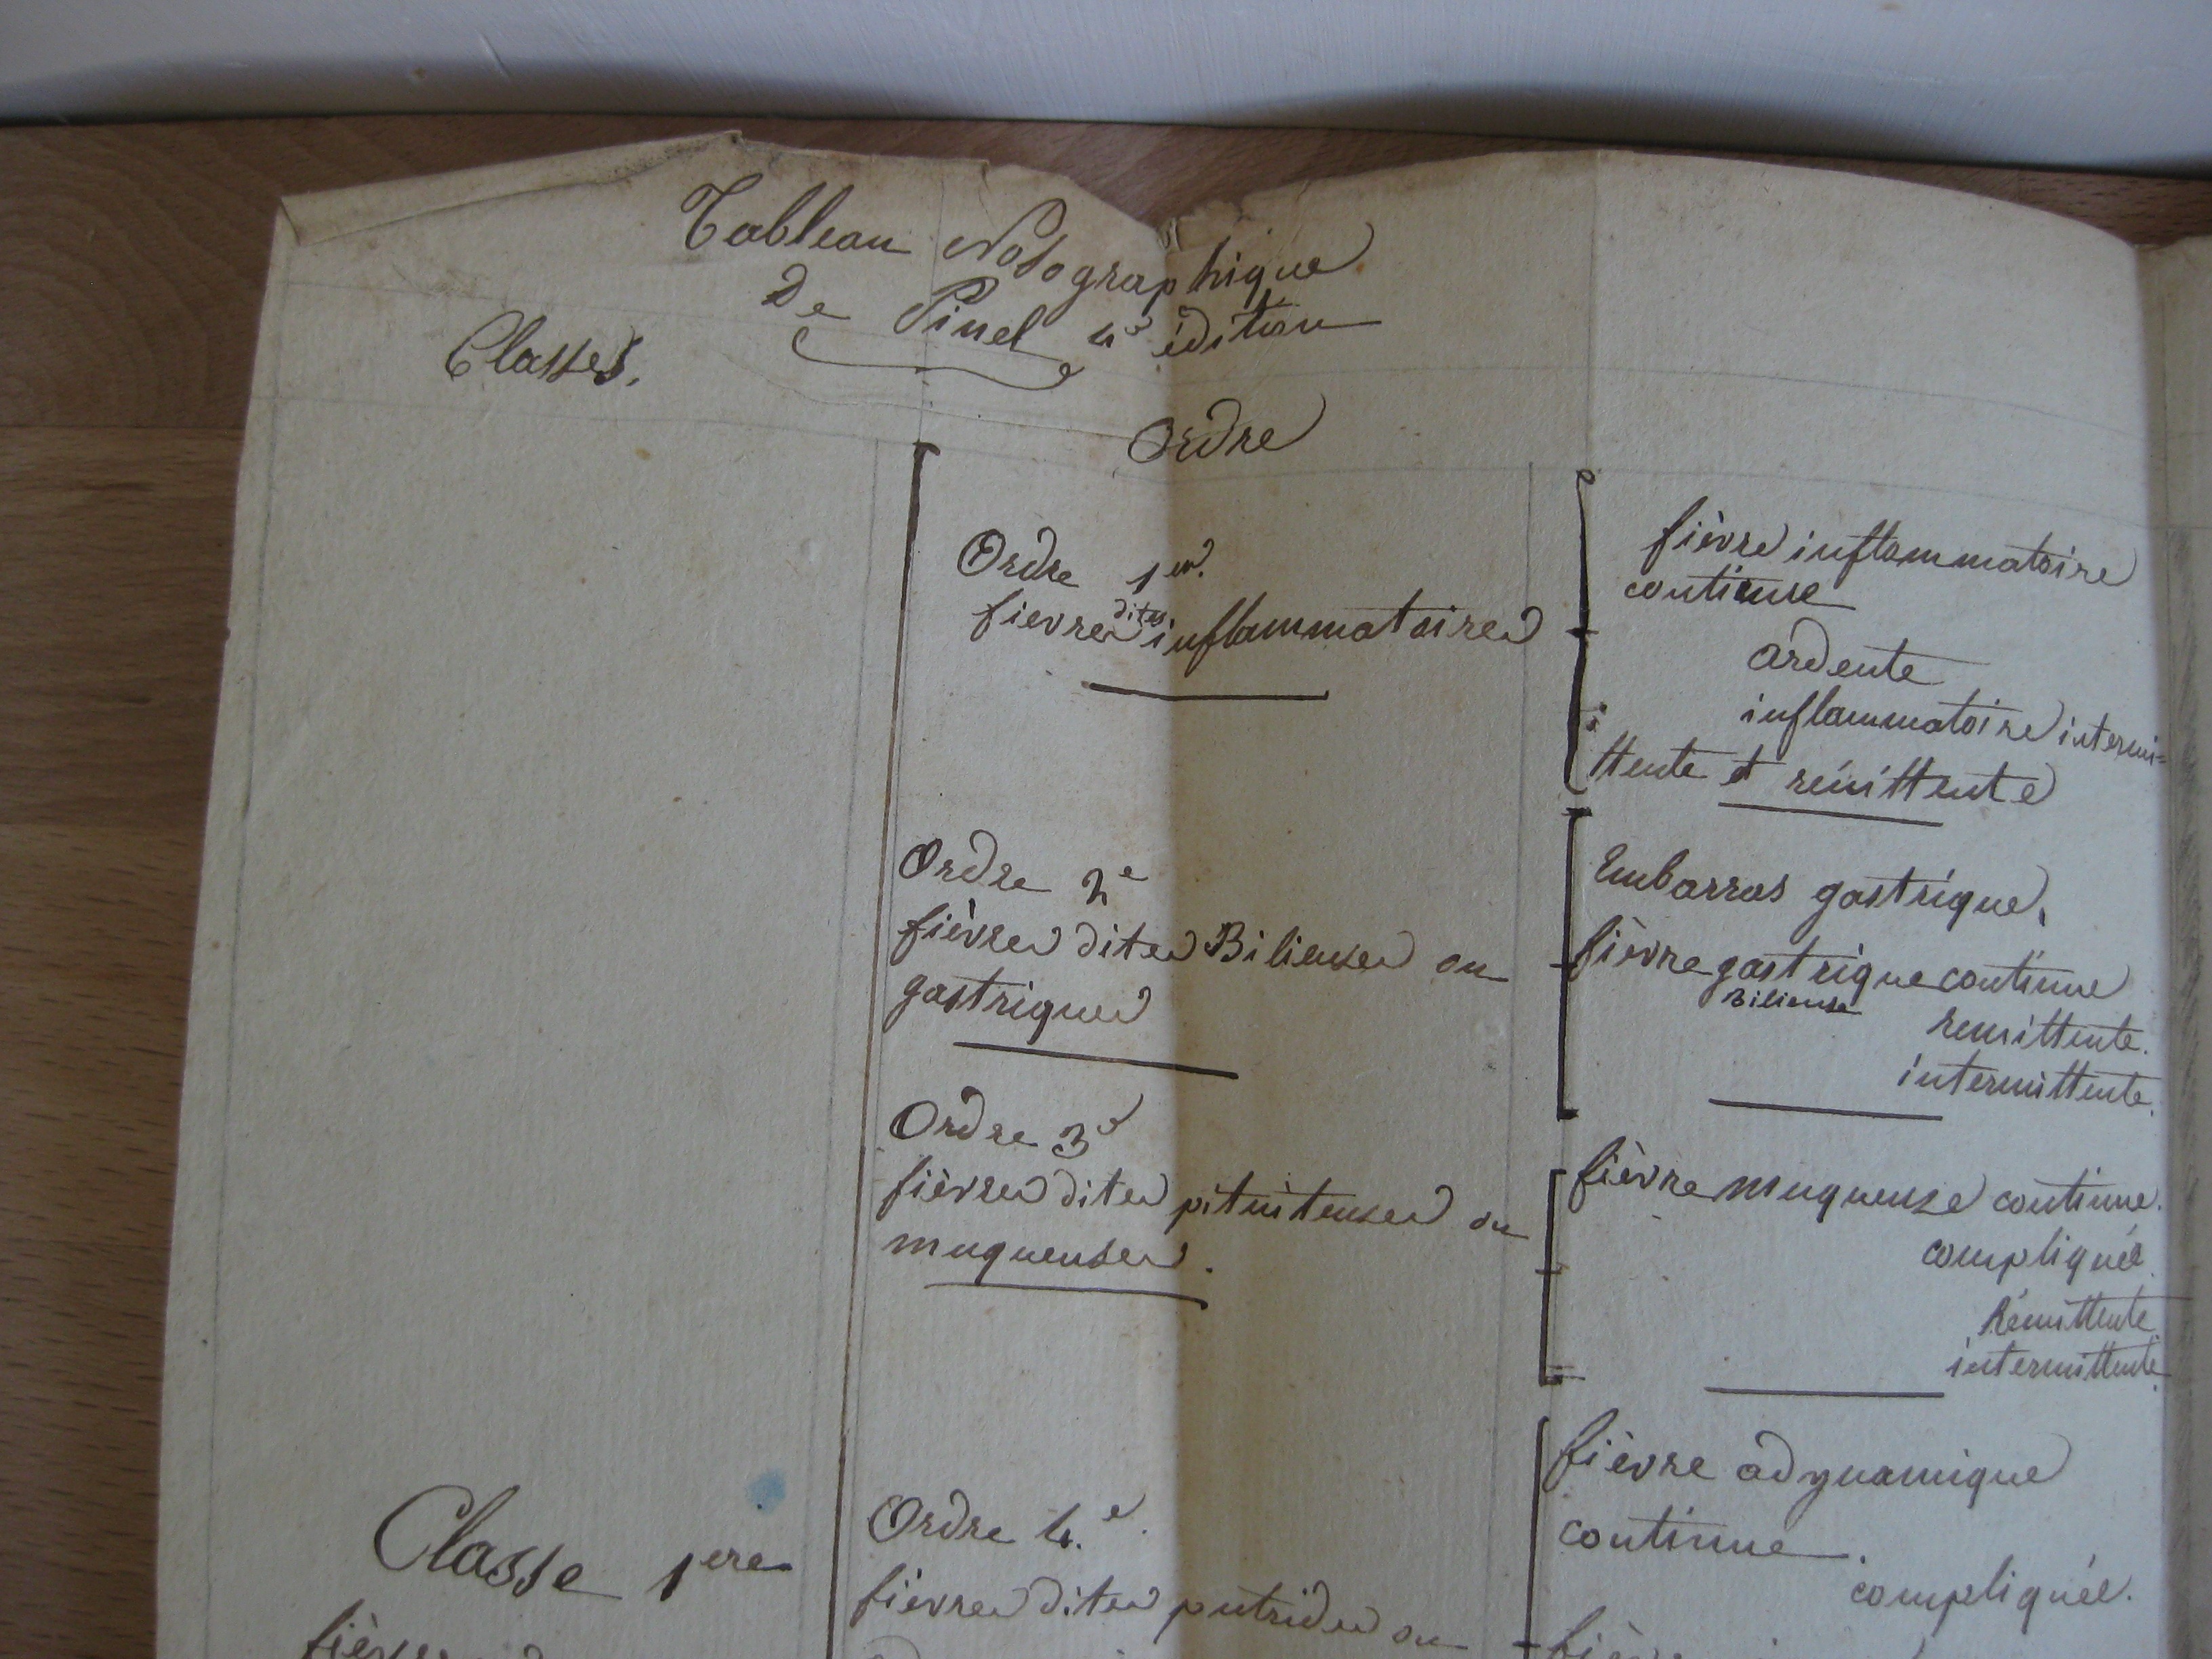 Tableau Nosographique
De Pinel 4e édition
Classes.
Ordre
Ordre 1er.
fievres dites inflammatoires
fièvre inflammatoire
continue
ardente
inflammatoire intermi=
ttente et rémittente
Ordre 2e
fièvres dites Bilieuses ou
gastriques
Embarras gastrique.
fièvre gastrique continue
Bilieuse
remittente.
intermittente.
Ordre 3e
fièvres dites pituiteuses ou
muqueuses.
fièvre muqueuse continue.
compliquée
Rémittente
intermittente.
Classe 1ere
Ordre 4.e.
fièvres dites putrides ou
fièvre adynamique
continue.
compliquée.